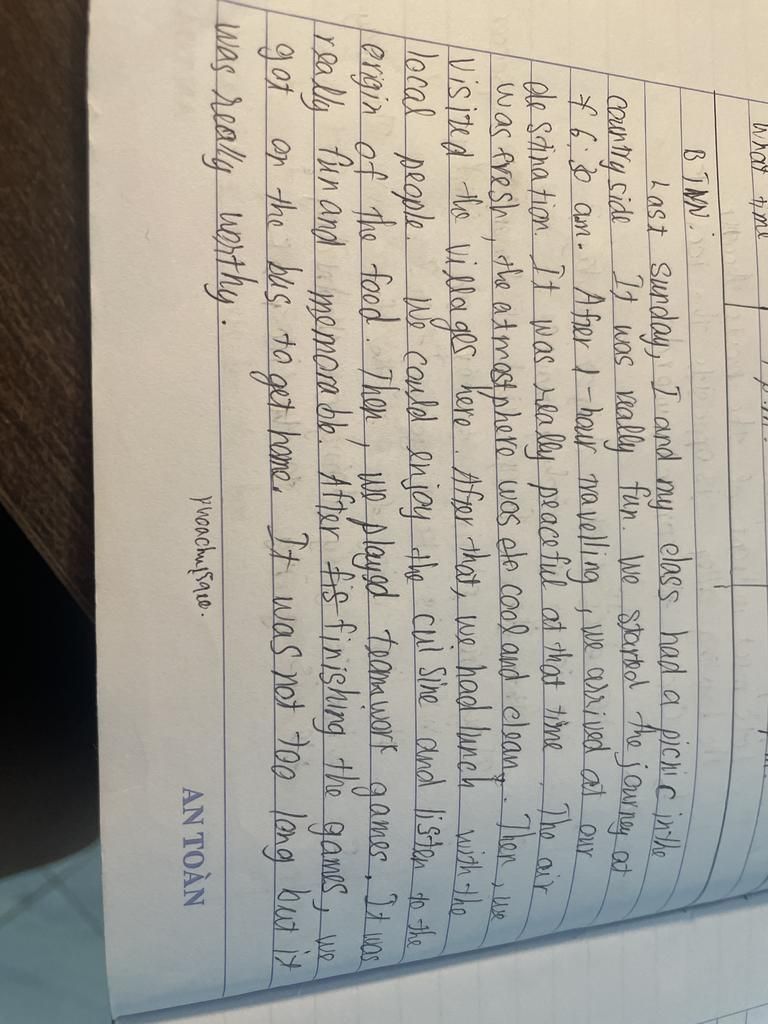 what time
BTNN:
Last sunday, I and my class had a picnic in the
country side It was really fun. We started the journey at
6:30 am. After 1-hour travelling, we arrived at our
destination. It was really peaceful at that time. The air
was fresh, the atmosphere was cool and clean. Then, we
visited the villages here. After that, we had lunch with the
local people. We could enjoy the cuisine and listen to the
origin of the food. Then, we played teamwork games. It was
really fun and memorable. After finishing the games, we
got on the bus to get home. It was not too long but it
was really worthy.
AN TOÀN